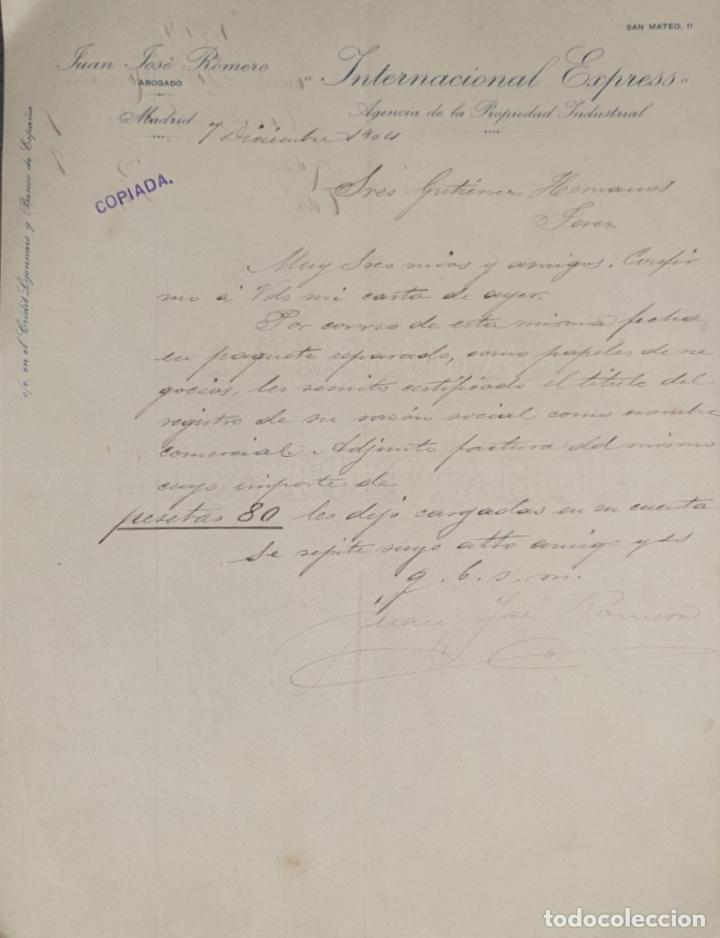 SAN MATEO, 11
Juan José Romero
ABOGADO
Madrid
"Internacional Express"
Agencia de la Propiedad Industrial
7 Diciembre 1904
c/c en el Crédit Lyonnais y Banco de España
COPIADA.
Sres Gutiérrez Hermanos
Jerez
Muy Sres mios y amigos: Confir
mo á Vds mi carta de ayer.
Por correo de esta misma fecha
en paquete separado, como papeles de ne
gocios, les remito certificado el título del
registro de su razón social como nombre
comercial. Adjunto factura del mismo
cuyo importe de
pesetas 80 les dejo cargadas en su cuenta
Se repite suyo atto amigo y ss
q. b. s. m.
Juan José Romero
todocoleccion